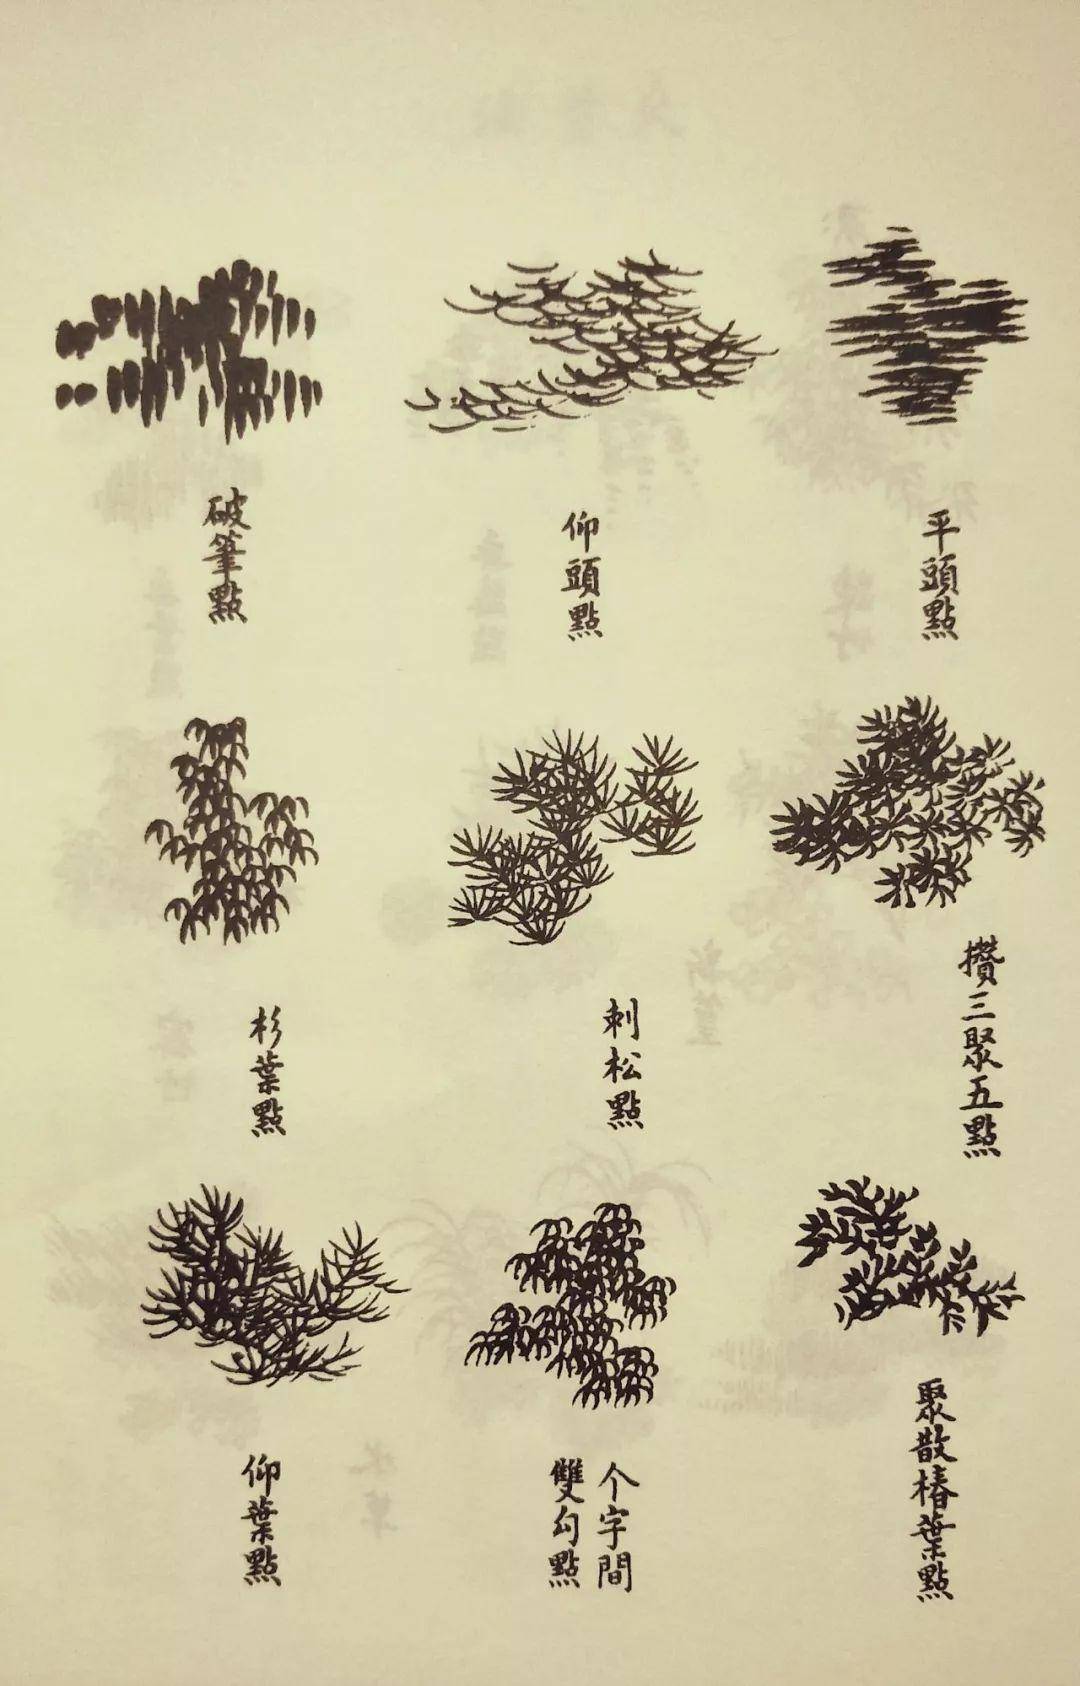 平頭點
仰頭點
破筆點
攢三聚五點
刺松點
杉葉點
聚散椿葉點
个字間
雙勾點
仰葉點